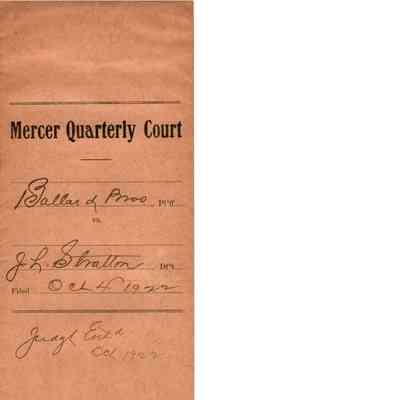 Mercer Quarterly Court
Ballard Bros Pltff
vs.
J. L. Stratton Dft
Filed Oct 4 1922
Judgt Ent'd
Oct 1922